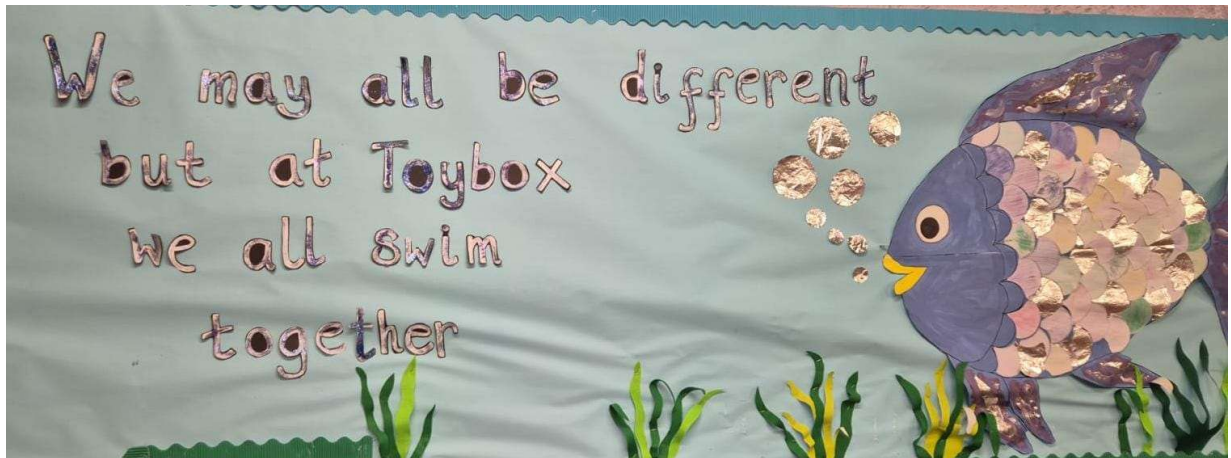 We may all be different
but at Toybox
we all swim
together